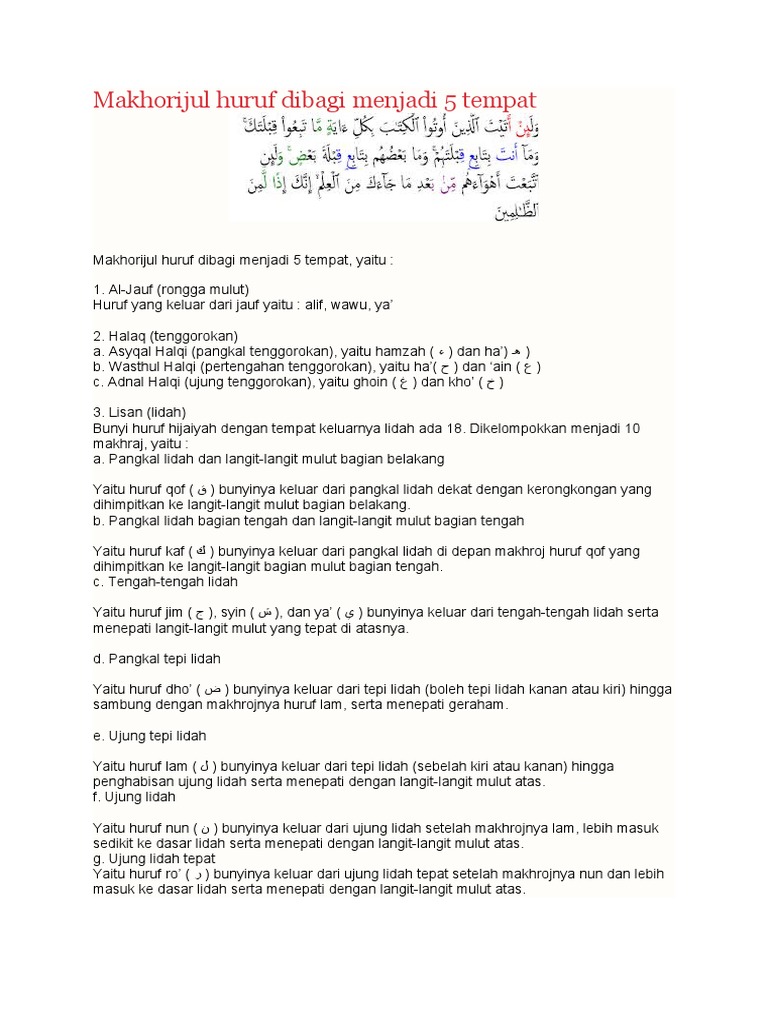 Makhorijul huruf dibagi menjadi 5 tempat
وَلَئِنْ أَتَيْتَ ٱلَّذِينَ أُوتُوا۟ ٱلْكِتَـٰبَ بِكُلِّ ءَايَةٍ مَّا تَبِعُوا۟ قِبْلَتَكَ ۚ
وَمَآ أَنتَ بِتَابِعٍ قِبْلَتَهُمْ ۚ وَمَا بَعْضُهُم بِتَابِعٍ قِبْلَةَ بَعْضٍ ۚ وَلَئِنِ
ٱتَّبَعْتَ أَهْوَآءَهُم مِّنۢ بَعْدِ مَا جَآءَكَ مِنَ ٱلْعِلْمِ ۙ إِنَّكَ إِذًا لَّمِنَ
ٱلظَّـٰلِمِينَ
Makhorijul huruf dibagi menjadi 5 tempat, yaitu :
1. Al-Jauf (rongga mulut)
Huruf yang keluar dari jauf yaitu : alif, wawu, ya’
2. Halaq (tenggorokan)
a. Asyqal Halqi (pangkal tenggorokan), yaitu hamzah ( ء ) dan ha’) هـ )
b. Wasthul Halqi (pertengahan tenggorokan), yaitu ha’( ح ) dan ‘ain ( ع )
c. Adnal Halqi (ujung tenggorokan), yaitu ghoin ( غ ) dan kho’ ( ح )
3. Lisan (lidah)
Bunyi huruf hijaiyah dengan tempat keluarnya lidah ada 18. Dikelompokkan menjadi 10
makhraj, yaitu :
a. Pangkal lidah dan langit-langit mulut bagian belakang
Yaitu huruf qof ( ق ) bunyinya keluar dari pangkal lidah dekat dengan kerongkongan yang
dihimpitkan ke langit-langit mulut bagian belakang.
b. Pangkal lidah bagian tengah dan langit-langit mulut bagian tengah
Yaitu huruf kaf ( ك ) bunyinya keluar dari pangkal lidah di depan makhroj huruf qof yang
dihimpitkan ke langit-langit bagian mulut bagian tengah.
c. Tengah-tengah lidah
Yaitu huruf jim ( ج ), syin ( ش ), dan ya’ ( ي ) bunyinya keluar dari tengah-tengah lidah serta
menepati langit-langit mulut yang tepat di atasnya.
d. Pangkal tepi lidah
Yaitu huruf dho’ ( ض ) bunyinya keluar dari tepi lidah (boleh tepi lidah kanan atau kiri) hingga
sambung dengan makhrojnya huruf lam, serta menepati geraham.
e. Ujung tepi lidah
Yaitu huruf lam ( ل ) bunyinya keluar dari tepi lidah (sebelah kiri atau kanan) hingga
penghabisan ujung lidah serta menepati dengan langit-langit mulut atas.
f. Ujung lidah
Yaitu huruf nun ( ن ) bunyinya keluar dari ujung lidah setelah makhrojnya lam, lebih masuk
sedikit ke dasar lidah serta menepati dengan langit-langit mulut atas.
g. Ujung lidah tepat
Yaitu huruf ro’ ( ر ) bunyinya keluar dari ujung lidah tepat setelah makhrojnya nun dan lebih
masuk ke dasar lidah serta menepati dengan langit-langit mulut atas.